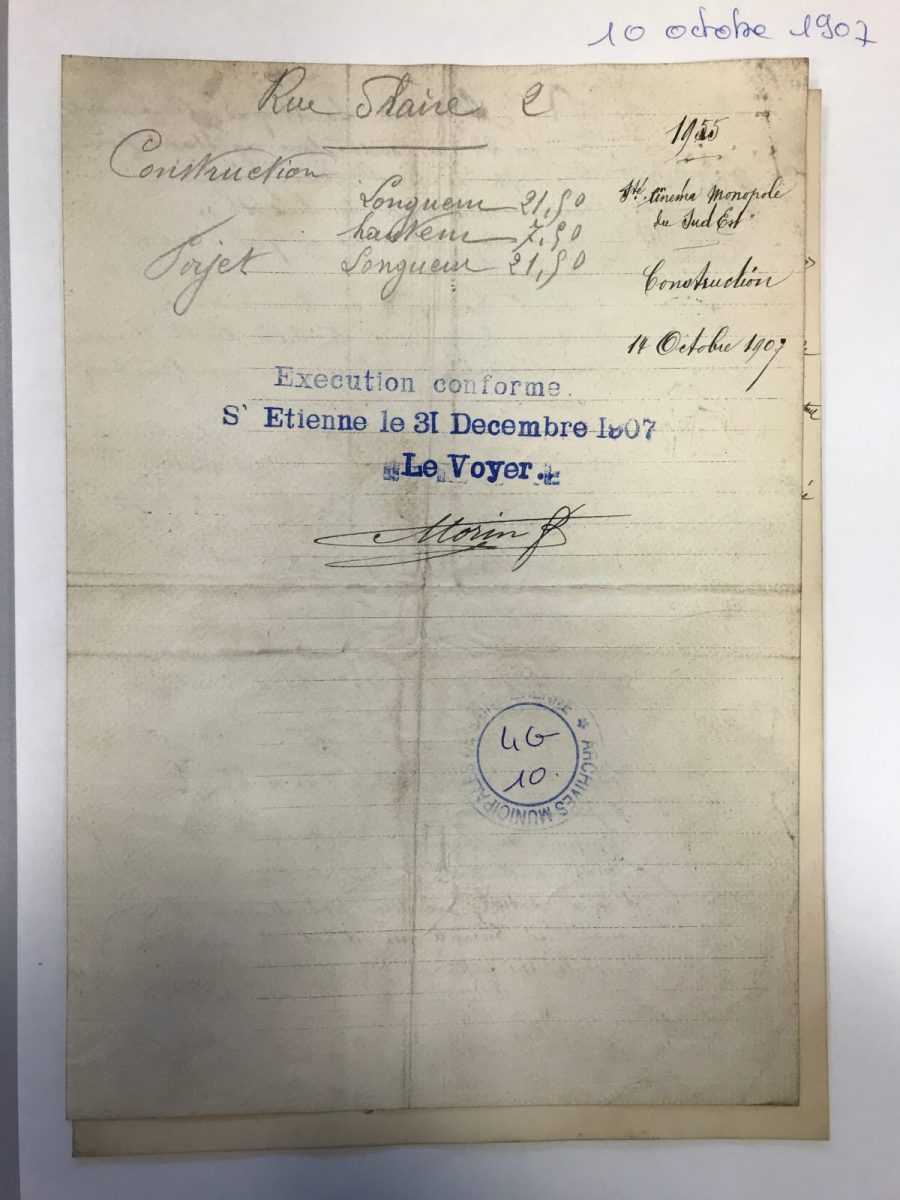 10 octobre 1907
Rue Praire 2
Construction
Longueur 21,50
hauteur 7,50
Forjet Longueur 21,50
1955
Sté Cinema Monopole
du Sud Est
Construction
14 Octobre 1907
Execution conforme.
St Etienne le 31 Decembre 1907
Le Voyer.
Morin
4G
10.
ARCHIVES MUNICIPALES DE SAINT-ETIENNE